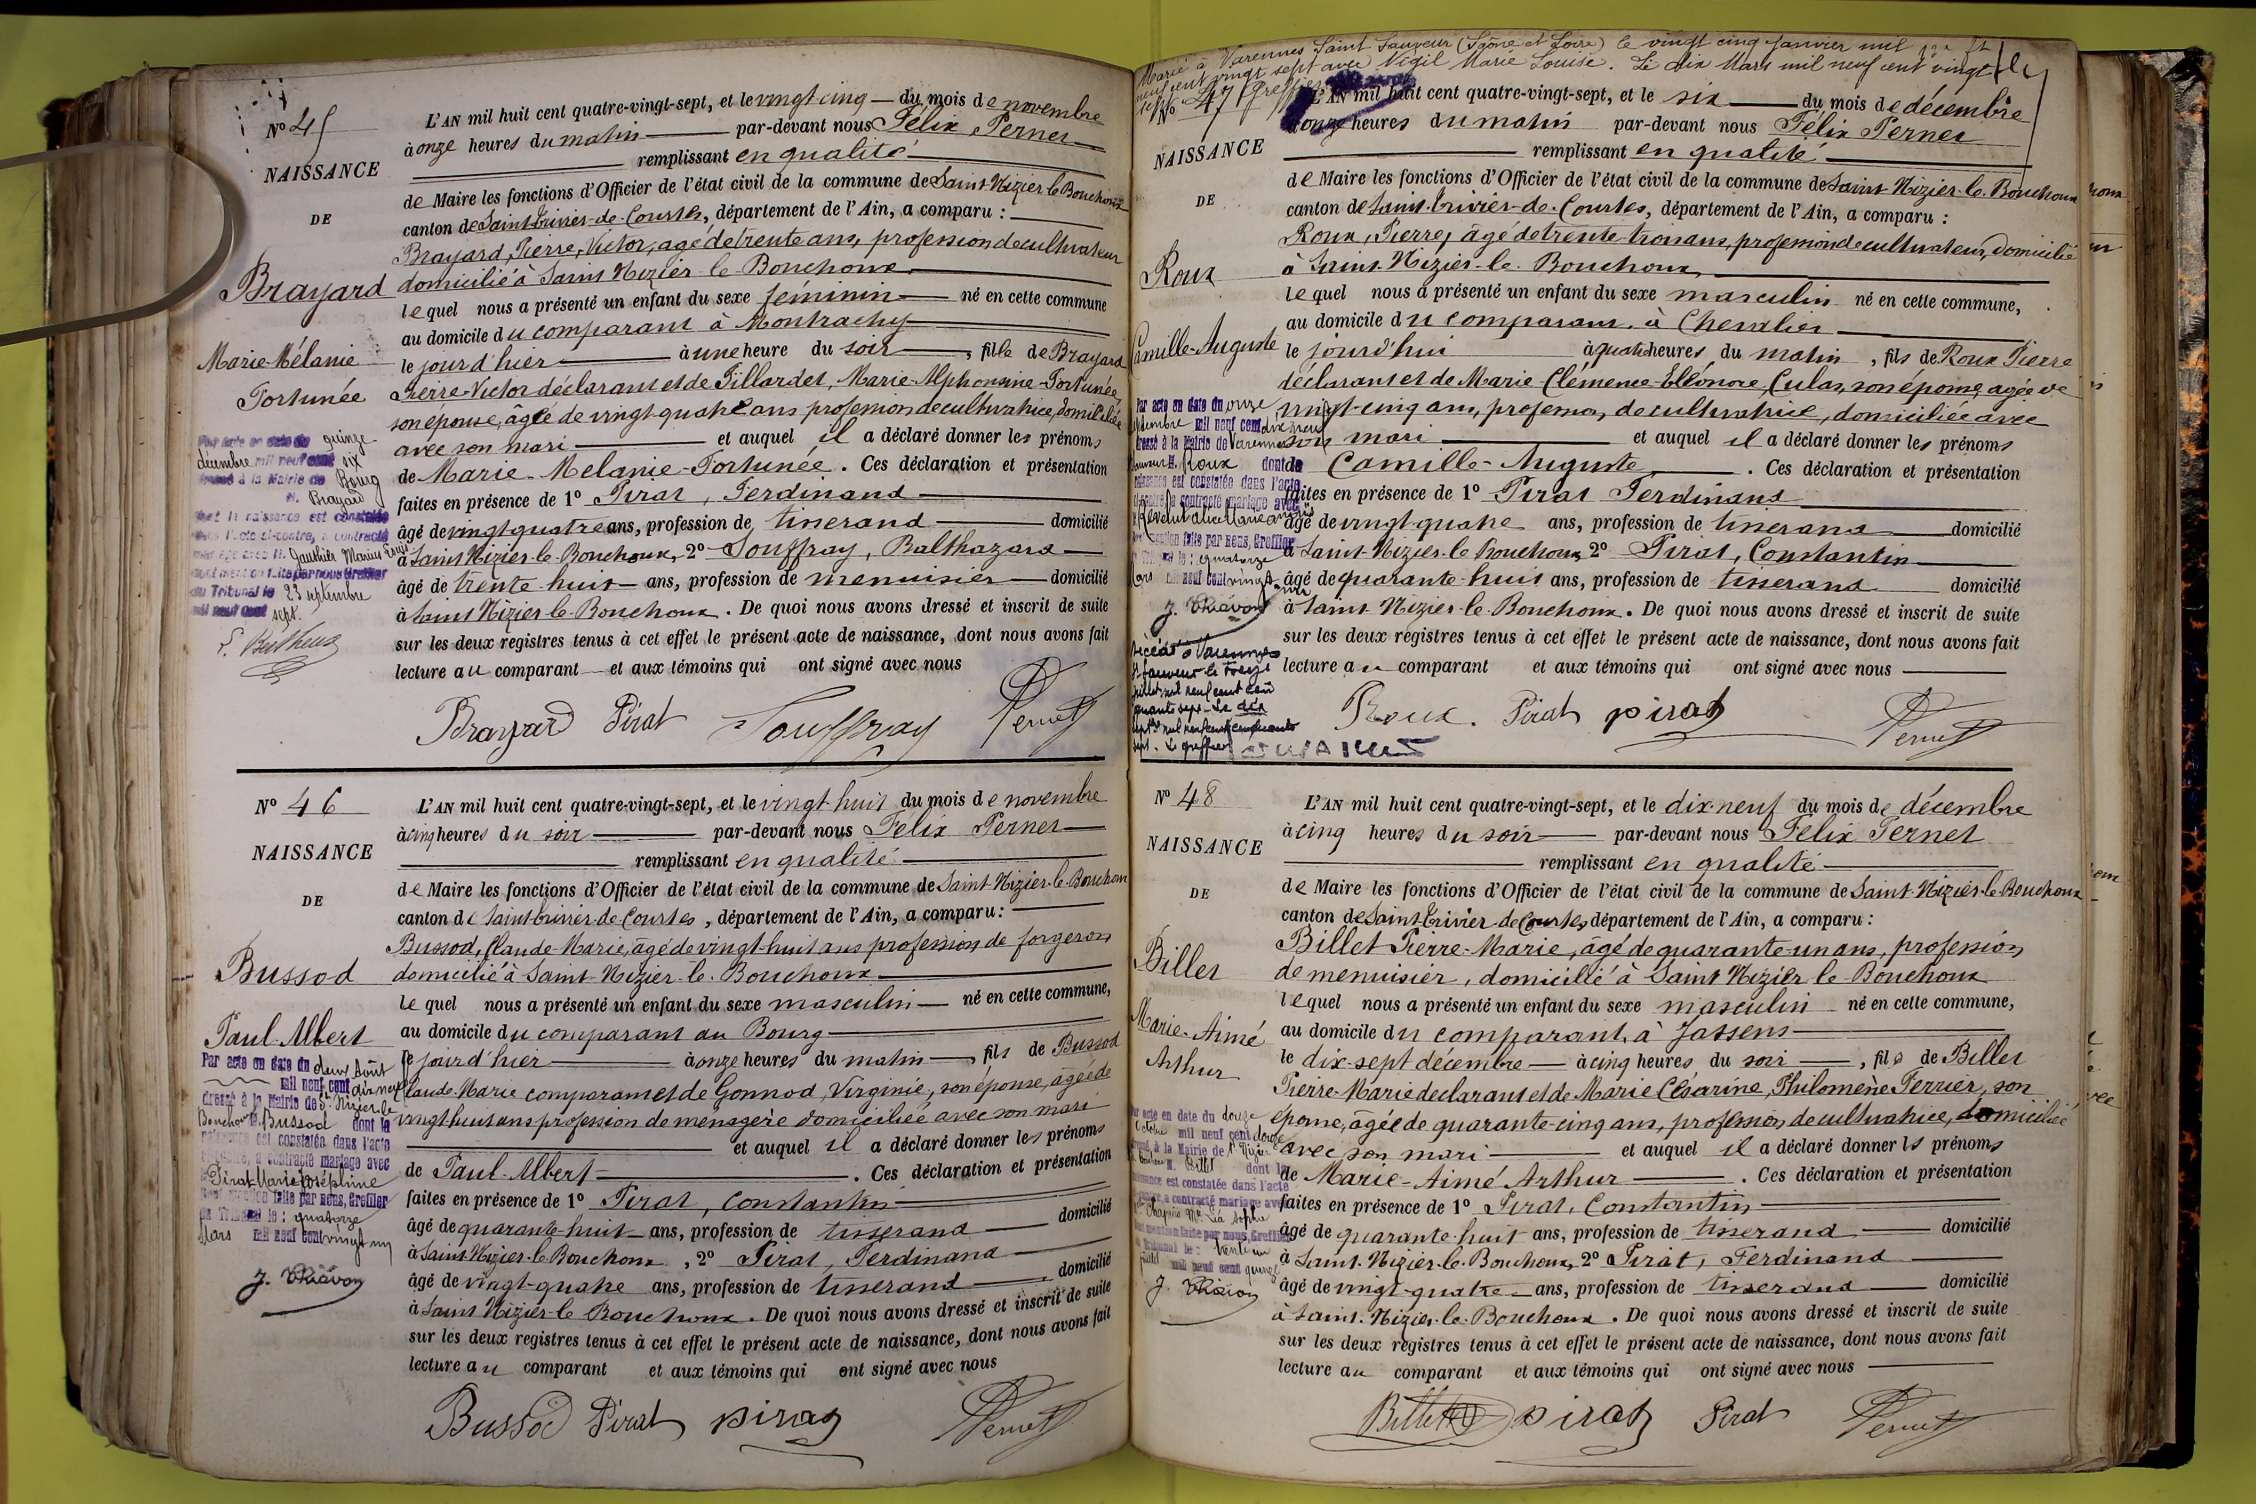 Nº 45
NAISSANCE
DE
Brayard
Marie-Mélanie
Fortunée
Par acte en date du quinze
décembre mil neuf cent six
dressé à la Mairie de Bourg
M. Brayard
dont la naissance est constatée
dans l'acte ci-contre, a contracté
mariage avec M. Gauthier Marius Louis
dont mention faite par nous Greffier
du Tribunal le 23 septembre
mil neuf cent sept.
L'AN mil huit cent quatre-vingt-sept, et le vingt cinq du mois de novembre
à onze heures du matin par-devant nous Félix Pernet
remplissant en qualité
de Maire les fonctions d'Officier de l'état civil de la commune de Saint-Nizier-le-Bouchoux
canton de Saint-Trivier-de-Courtes, département de l'Ain, a comparu :
Brayard, Pierre, Victor, âgé de trente ans, profession de cultivateur
domicilié à Saint Nizier-le-Bouchoux
lequel nous a présenté un enfant du sexe féminin né en cette commune
au domicile du comparant à Montrachy
le jourd'hier à une heure du soir, fille de Brayard
Pierre-Victor déclarant et de Pillardet, Marie-Alphonsine-Fortunée,
son épouse, âgée de vingt-quatre ans profession de cultivatrice, domiciliée
avec son mari et auquel il a déclaré donner les prénoms
de Marie-Mélanie-Fortunée. Ces déclaration et présentation
faites en présence de 1º Pirat, Ferdinand
âgé de vingt-quatre ans, profession de tisserand domicilié
à Saint Nizier-le-Bouchoux, 2º Souffray, Balthazard
âgé de trente-huit ans, profession de menuisier domicilié
à Saint Nizier-le-Bouchoux. De quoi nous avons dressé et inscrit de suite
sur les deux registres tenus à cet effet le présent acte de naissance, dont nous avons fait
lecture au comparant et aux témoins qui ont signé avec nous
Brayard Pirat Souffray Pernet
Nº 46
NAISSANCE
DE
Bussod
Paul-Albert
Par acte en date du deux Août
mil neuf cent dix neuf
dressé à la Mairie de St Nizier le
Bouchoux M. Bussod dont la
naissance est constatée dans l'acte
ci-contre, a contracté mariage avec
Pirat Marie Joséphine
dont mention faite par nous, Greffier
du Tribunal le : quatorze
Mars mil neuf cent vingt un
J. Thiavon
L'AN mil huit cent quatre-vingt-sept, et le vingt-huit du mois de novembre
à cinq heures du soir par-devant nous Félix Pernet
remplissant en qualité
de Maire les fonctions d'Officier de l'état civil de la commune de Saint-Nizier-le-Bouchoux
canton de Saint-Trivier-de-Courtes, département de l'Ain, a comparu :
Bussod, Claude-Marie, âgé de vingt-huit ans profession de forgeron
domicilié à Saint-Nizier-le-Bouchoux
lequel nous a présenté un enfant du sexe masculin né en cette commune,
au domicile du comparant au Bourg
le jourd'hier à onze heures du matin, fils de Bussod
Claude-Marie comparant et de Gonnod, Virginie, son épouse, âgée de
vingt huit ans profession de ménagère domiciliée avec son mari
et auquel il a déclaré donner les prénoms
de Paul-Albert. Ces déclaration et présentation
faites en présence de 1º Pirat, Constantin
âgé de quarante-huit ans, profession de tisserand domicilié
à Saint-Nizier-le-Bouchoux, 2º Pirat, Ferdinand
âgé de vingt-quatre ans, profession de tisserand domicilié
à Saint Nizier-le-Bouchoux. De quoi nous avons dressé et inscrit de suite
sur les deux registres tenus à cet effet le présent acte de naissance, dont nous avons fait
lecture au comparant et aux témoins qui ont signé avec nous
Bussod Pirat Pirat Pernet
Marié à Varennes Saint Sauveur (Saône et Loire) le vingt cinq janvier mil
neuf cent vingt sept avec Nigil Marie Louise. Le dix Mars mil neuf cent vingt
sept. Greffier
Nº 47
NAISSANCE
DE
Roux
Camille-Auguste
Par acte en date du onze
mil neuf cent dix neuf
dressé à la Mairie de Varennes
Sauveur M. Roux dont la
naissance est constatée dans l'acte
ci-contre, a contracté mariage avec
dont mention faite par nous, Greffier
du Tribunal le : quatorze
Mars mil neuf cent vingt un
J. Thiavon
Décédé à Varennes
St Sauveur le treize
juillet mil neuf cent cin
quante sept - Le dix
sept bre mil neuf cent cinquante
sept. Le greffier
L'AN mil huit cent quatre-vingt-sept, et le six du mois de décembre
à onze heures du matin par-devant nous Félix Pernet
remplissant en qualité
de Maire les fonctions d'Officier de l'état civil de la commune de Saint-Nizier-le-Bouchoux
canton de Saint-Trivier-de-Courtes, département de l'Ain, a comparu :
Roux, Pierre, âgé de trente trois ans, profession de cultivateur, domicilié
à Saint-Nizier-le-Bouchoux
lequel nous a présenté un enfant du sexe masculin né en cette commune,
au domicile du comparant à Chevalier
le jourd'hui à quatre heures du matin, fils de Roux Pierre
déclarant et de Marie Clémence Eléonore, Culas, son épouse, âgée de
vingt-cinq ans, profession de cultivatrice, domiciliée avec
son mari et auquel il a déclaré donner les prénoms
de Camille-Auguste. Ces déclaration et présentation
faites en présence de 1º Pirat Ferdinand
âgé de vingt-quatre ans, profession de tisserand domicilié
à Saint-Nizier-le-Bouchoux 2º Pirat, Constantin
âgé de quarante-huit ans, profession de tisserand domicilié
à Saint-Nizier-le-Bouchoux. De quoi nous avons dressé et inscrit de suite
sur les deux registres tenus à cet effet le présent acte de naissance, dont nous avons fait
lecture au comparant et aux témoins qui ont signé avec nous
Roux. Pirat Pirat Pernet
Nº 48
NAISSANCE
DE
Billet
Marie-Aimé
Arthur
Par acte en date du douze
Octobre mil neuf cent douze
dressé à la Mairie de St Nizier
le Bouchoux M. Billet dont la
naissance est constatée dans l'acte
ci-contre, a contracté mariage avec
dont mention faite par nous, Greffier
du Tribunal le : trente un
mil neuf cent quinze
J. Thiavon
L'AN mil huit cent quatre-vingt-sept, et le dix-neuf du mois de décembre
à cinq heures du soir par-devant nous Félix Pernet
remplissant en qualité
de Maire les fonctions d'Officier de l'état civil de la commune de Saint-Nizier-le-Bouchoux
canton de Saint-Trivier-de-Courtes, département de l'Ain, a comparu :
Billet Pierre-Marie, âgé de quarante-un ans, profession
de menuisier, domicilié à Saint Nizier le Bouchoux
lequel nous a présenté un enfant du sexe masculin né en cette commune,
au domicile du comparant, à Jassens
le dix-sept décembre à cinq heures du soir, fils de Billet
Pierre-Marie déclarant et de Marie Césarine, Philomène Perrier, son
épouse, âgée de quarante-cinq ans, profession de cultivatrice, domiciliée
avec son mari et auquel il a déclaré donner les prénoms
de Marie-Aimé Arthur. Ces déclaration et présentation
faites en présence de 1º Pirat, Constantin
âgé de quarante-huit ans, profession de tisserand domicilié
à Saint-Nizier-le-Bouchoux, 2º Pirat, Ferdinand
âgé de vingt-quatre ans, profession de tisserand domicilié
à Saint-Nizier-le-Bouchoux. De quoi nous avons dressé et inscrit de suite
sur les deux registres tenus à cet effet le présent acte de naissance, dont nous avons fait
lecture au comparant et aux témoins qui ont signé avec nous
Billet Pirat Pirat Pernet